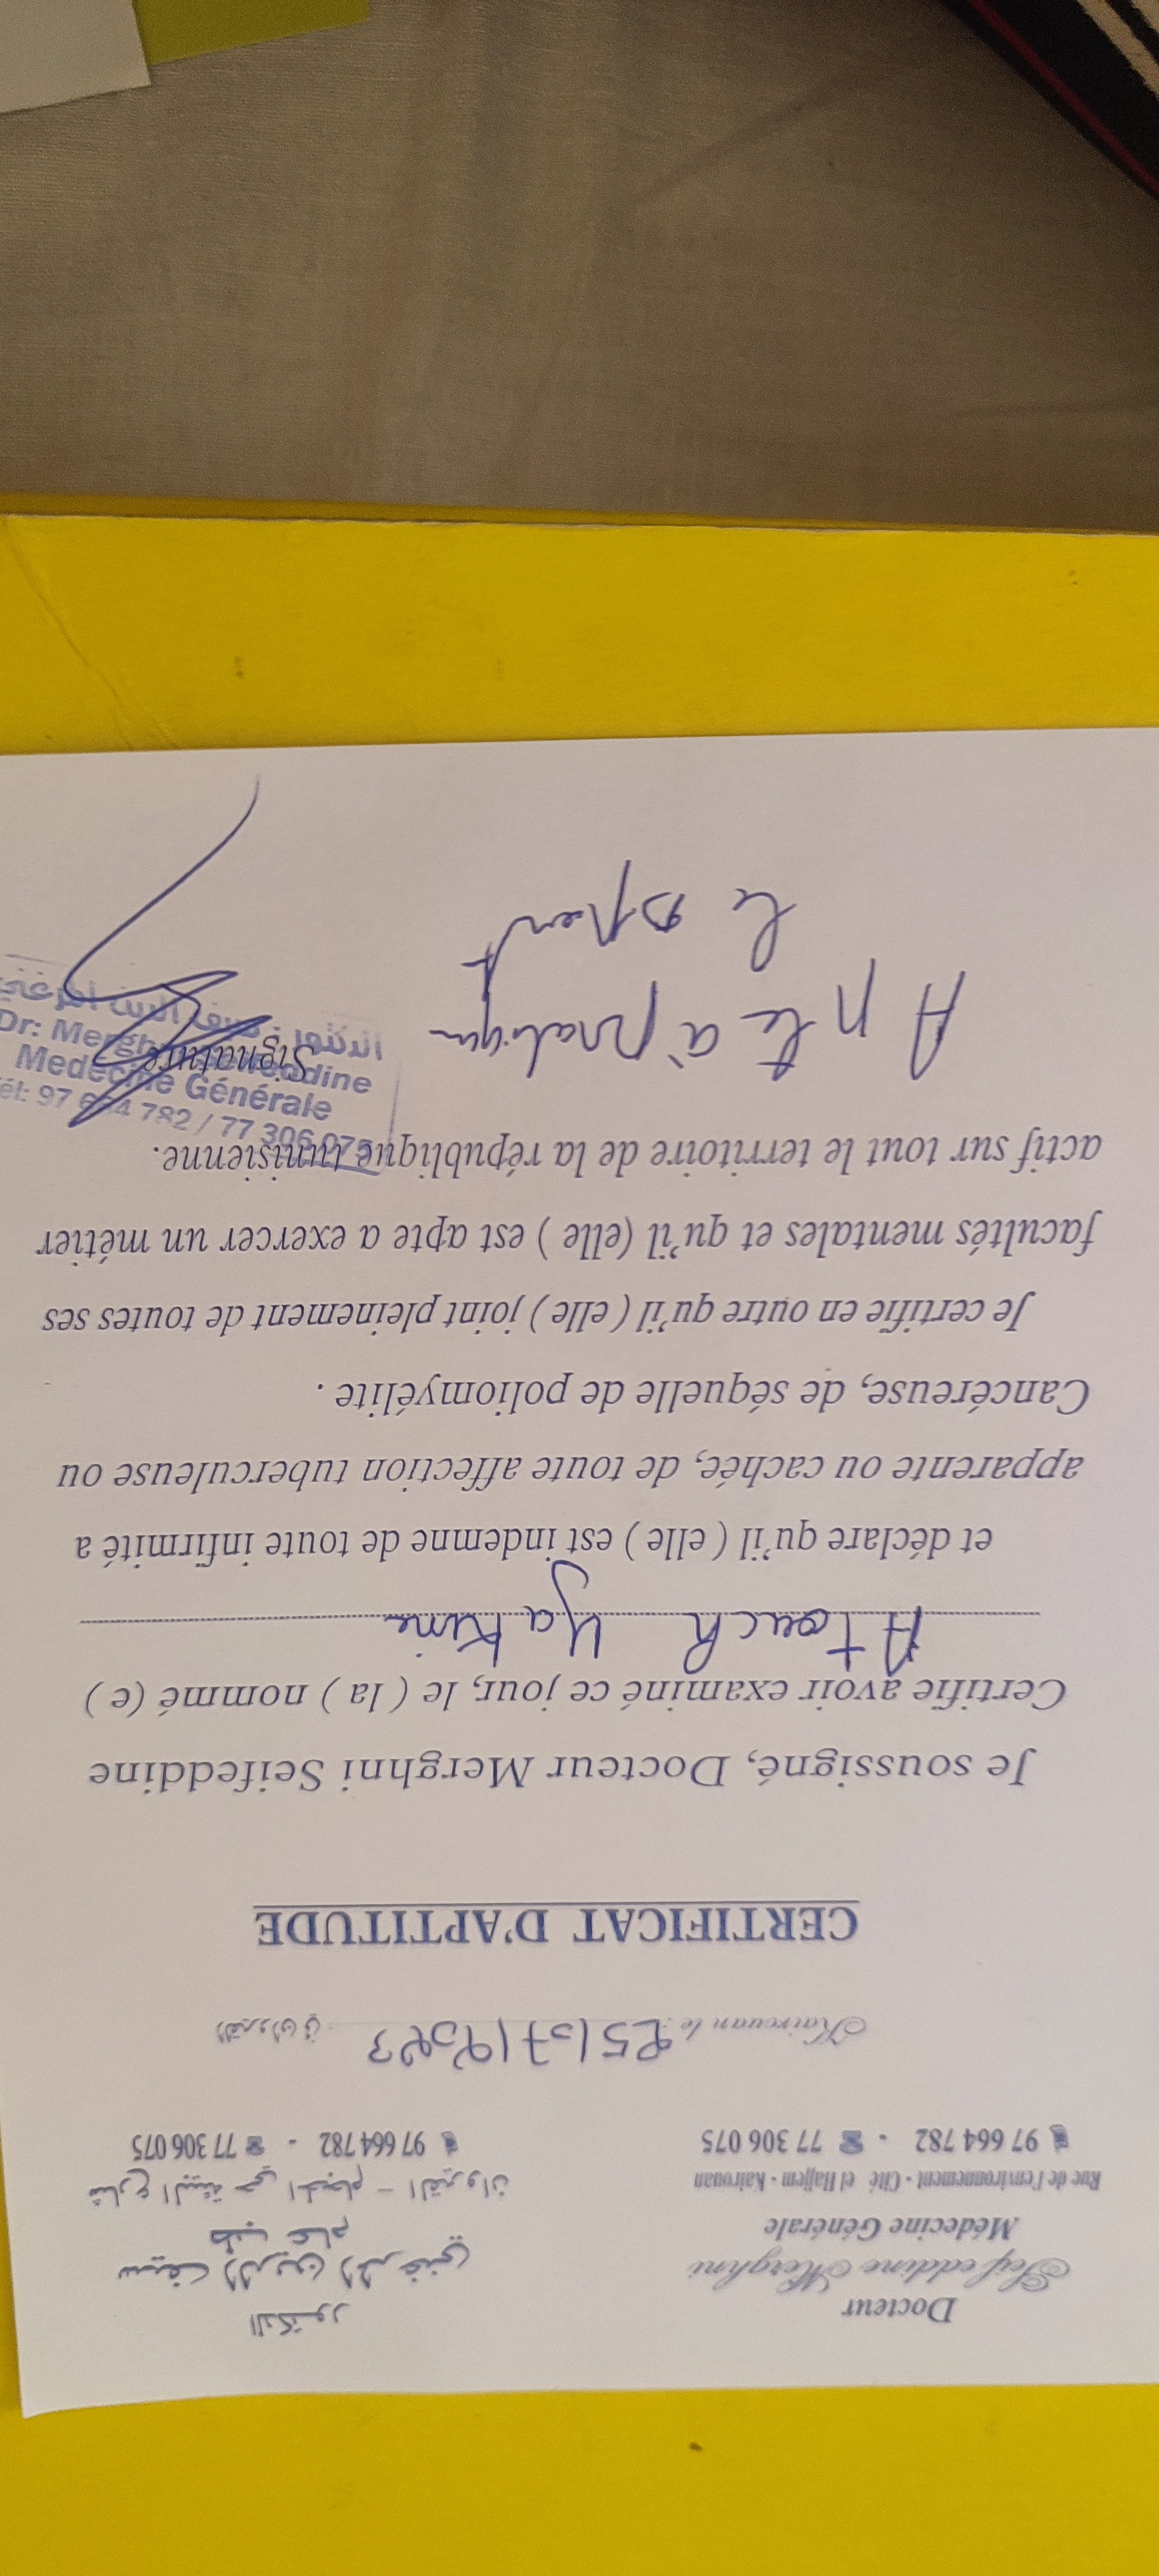 Docteur
Seifeddine Merghni
Médecine Générale
Rue de l'environnement - Cité el Hajjem - Kairouan
97 664 782 - 77 306 075
الدكتور
سيف الدين المرغني
طب عام
شارع البيئة حي الحجام - القيروان
97 664 782 - 77 306 075
Kairouan le 25/07/2023 القيروان في
CERTIFICAT D'APTITUDE
Je soussigné, Docteur Merghni Seifeddine
Certifie avoir examiné ce jour, le ( la ) nommé (e )
Atouch Yakine
et déclare qu'il ( elle ) est indemne de toute infirmité a
apparente ou cachée, de toute affection tuberculeuse ou
Cancéreuse, de séquelle de poliomyélite .
Je certifie en outre qu'il ( elle ) joint pleinement de toutes ses
facultés mentales et qu'il (elle ) est apte a exercer un métier
actif sur tout le territoire de la république tunisienne.
Apte à pratiquer
le sport
Signature
الدكتور : سيف الدين المرغني
Dr: Merghni Seifeddine
Medecine Générale
Tél: 97 664 782 / 77 306 075